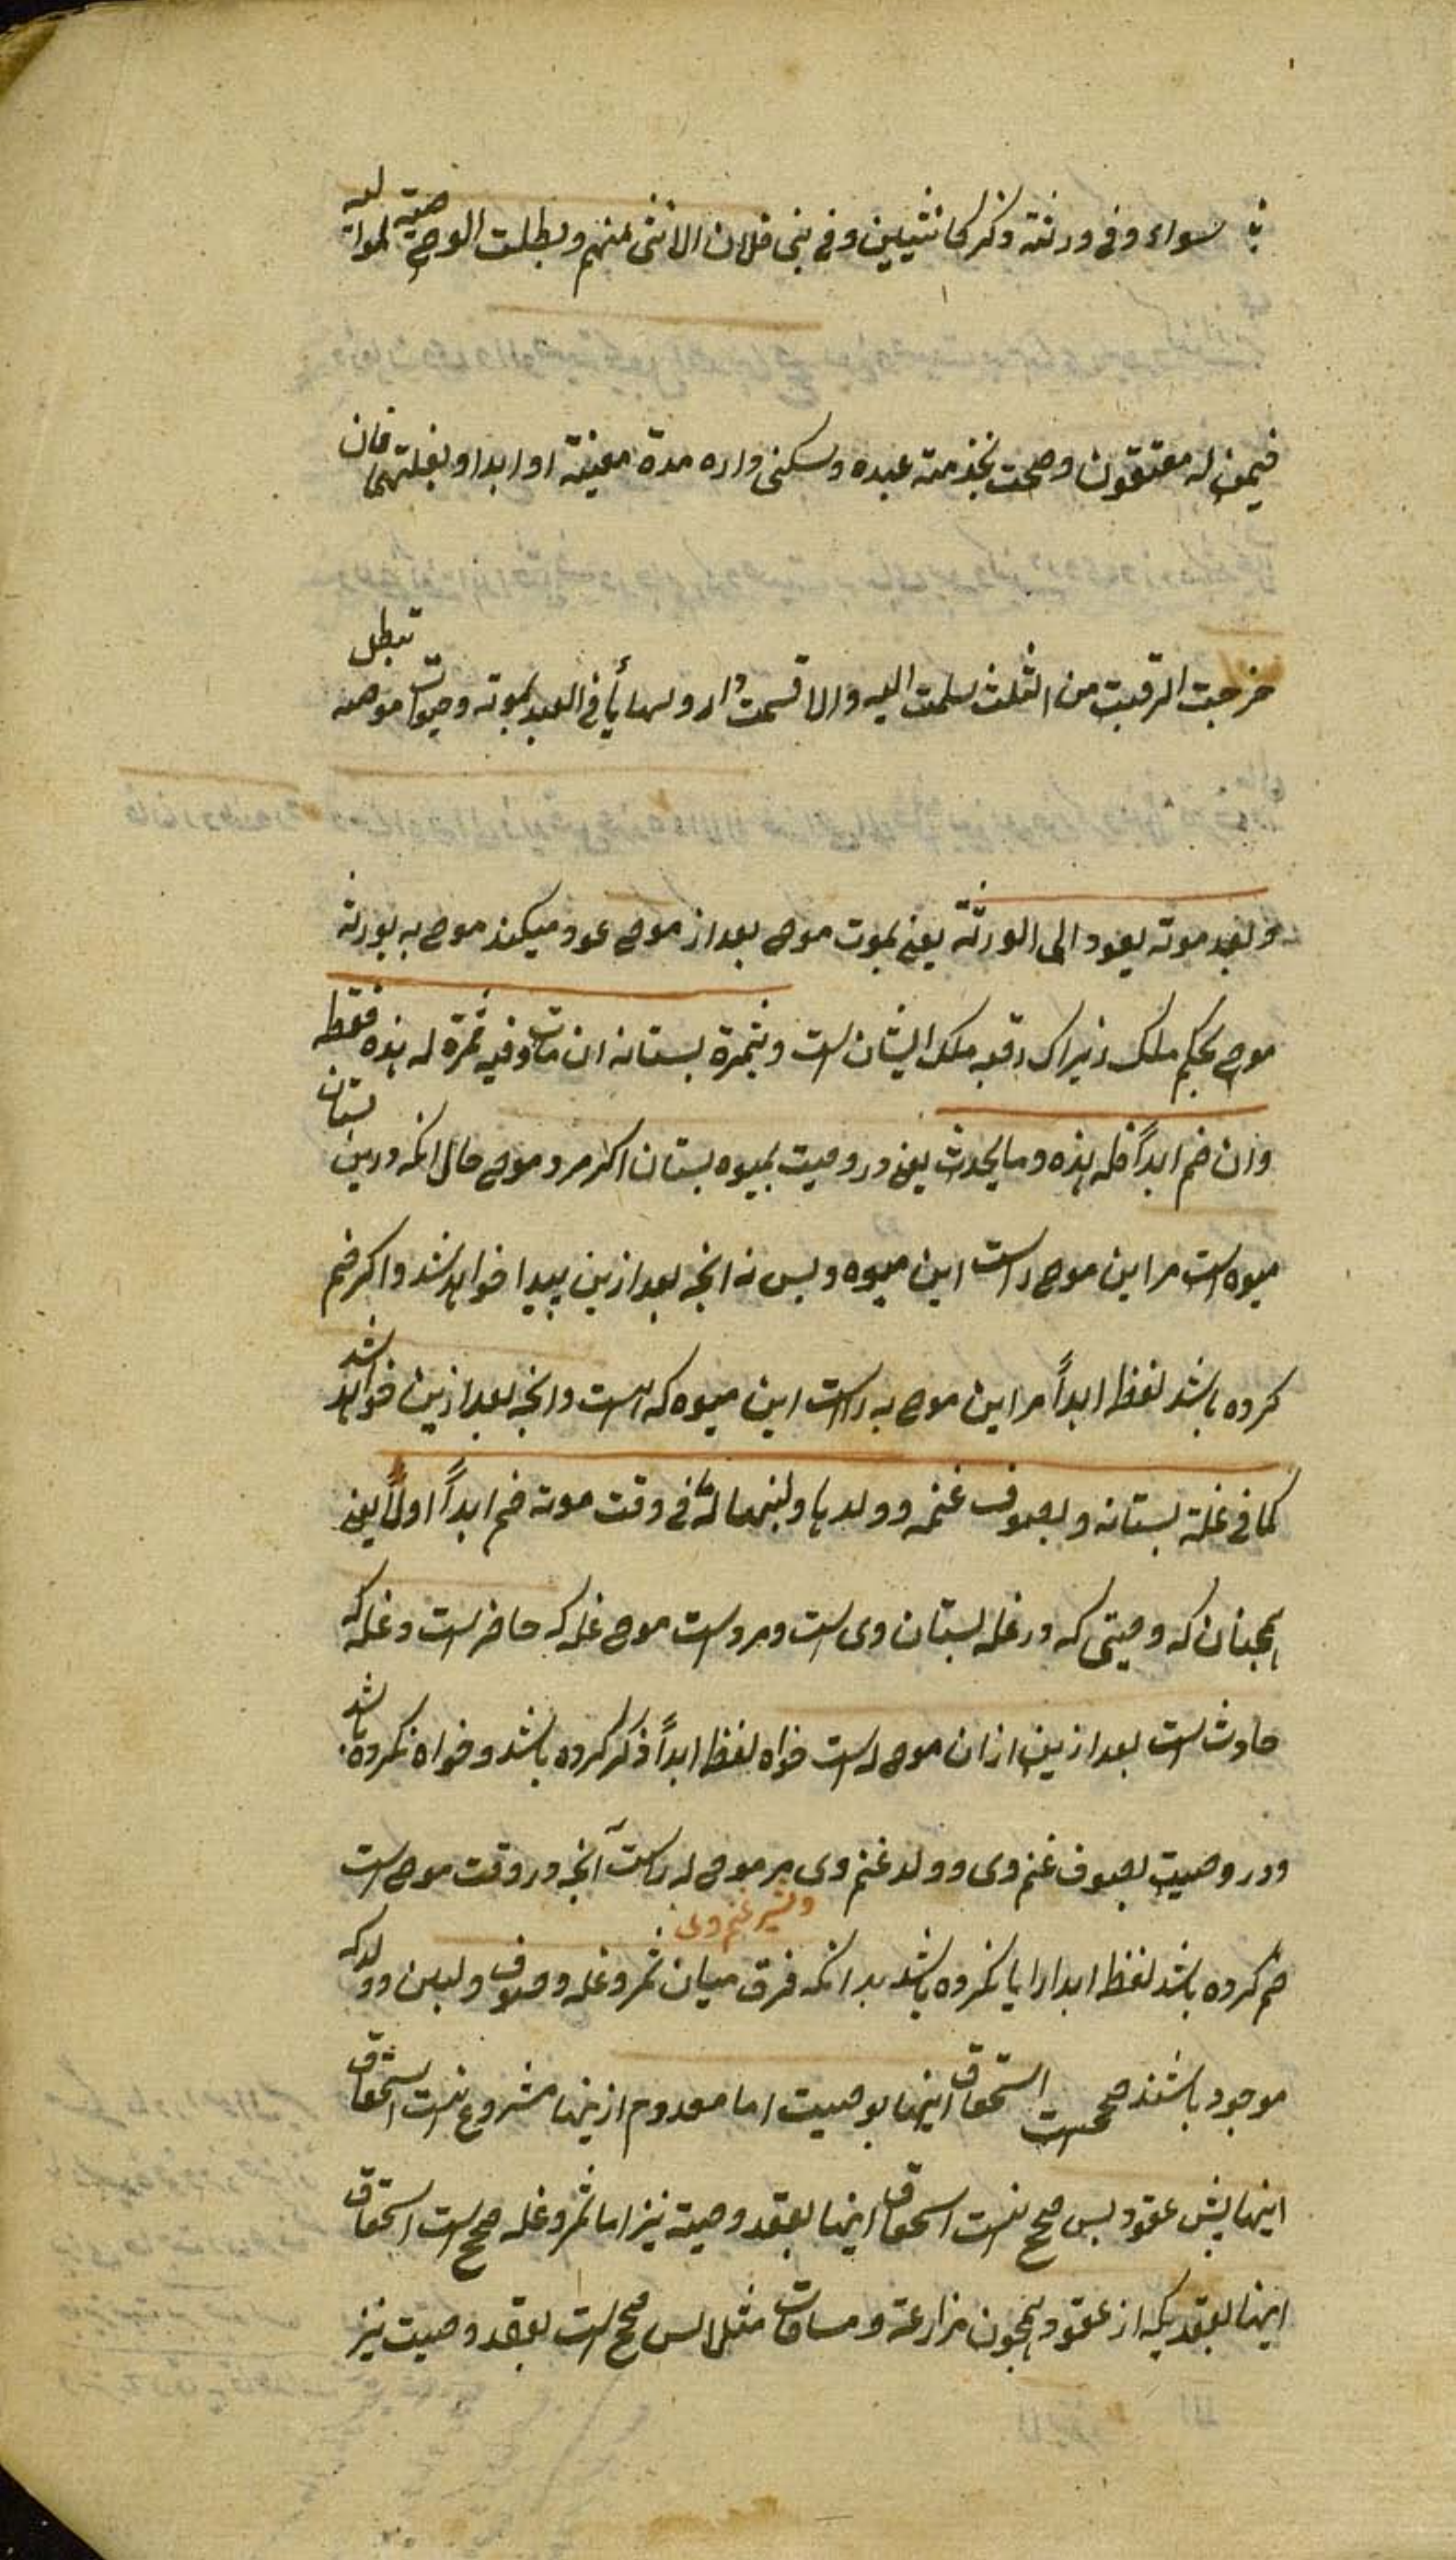 سواء وفی ورثته ذکر کانثیین وفی بنی فلان الانثی منهم وبطلت الوصیة لموالیه
فیمن له معتقون وصحت بخدمة عبده وسکنی داره مدة معینة او ابدا وبغلتهما فان
خرجت الرقبت من الثلث سلمت الیه والا قسمت الدار وتهایأ فی العبد بموته وحیوة موصیه تبطل
وبعد موته یعود الی الورثة یعنی بموت موصی بعد از موصی عود میکند موصی به بورثه
موصی بحکم ملک زیراک رقبه ملک ایشان است وبثمرة بستانه ان مات وفیه ثمرة له هذه فقط
وان ضم ابداً فله هذه وما یحدث یعنی در وصیت بمیوه بستان اکر مرد موصی حال آنکه درین بستان
میوه است مر این موصی راست این میوه وبس نه انچه بعد ازین پیدا خواهد شد واکر ضم
کرده باشد لفظ ابداً مر این موصی به راست این میوه که است وانچه بعد ازین خواهد شد
کما فی غلة بستانه وبصوف غنمه وولدها ولبنها له ما فی وقت موته ضم ابداً اولاً یعنی
همچنان که وصیتی که در غله بستان وی است ومر وراست موصی غله که حاضر است وغله که
حادث است بعد ازین از ان موصی له است خواه لفظ ابداً ذکر کرده باشد وخواه نکرده باشد
ودر وصیت بصوف غنم وی وولد غنم وی مر موصی له راست آنچه در وقت موصی است
وشیر غنم وی
ضم کرده باشد لفظ ابدا را یا نکرده باشد بدانکه فرق میان ثمر وغله وصوف ولبن وولد که
موجود باشند صحیح است استحقاق اینها بوصیت اما معدوم ازینها مشروع نیست استحقاق
اینها پیش عقود بس صحیح نیست استحقاق اینها بعقد وصیة نیز اما ثمر وغله صحیح است استحقاق
اینها بعقد یکه از عقود همچون مزارعة ومساقات مثلا بس صحیح است بعقد وصیت نیز